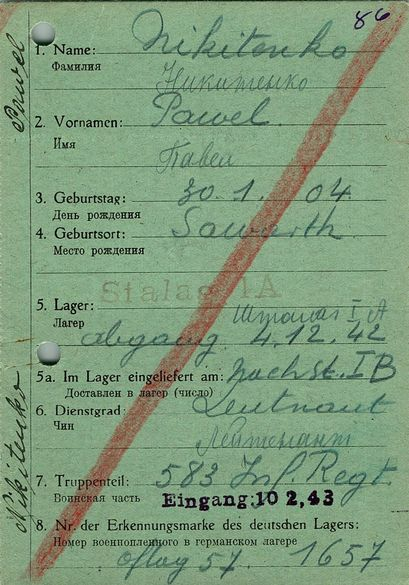 86
1. Name: Nikitenko
Фамилия Никитенко
2. Vornamen: Pawel
Имя Павел
3. Geburtstag: 30. 1. 04
День рождения
4. Geburtsort: Sawarth
Место рождения
Stalag IA
5. Lager: Шталаг I A
Лагерь
abgang 4.12.42
5a. Im Lager eingeliefert am: nach st. I B
Доставлен в лагерь (число)
6. Dienstgrad: Leutnant
Чин Лейтенант
7. Truppenteil: 583 Inf. Regt.
Воинская часть Eingang: 10 2, 43
8. Nr. der Erkennungsmarke des deutschen Lagers:
Номер военнопленного в германском лагере
oflag 57. 1657
Nikitenko Pawel